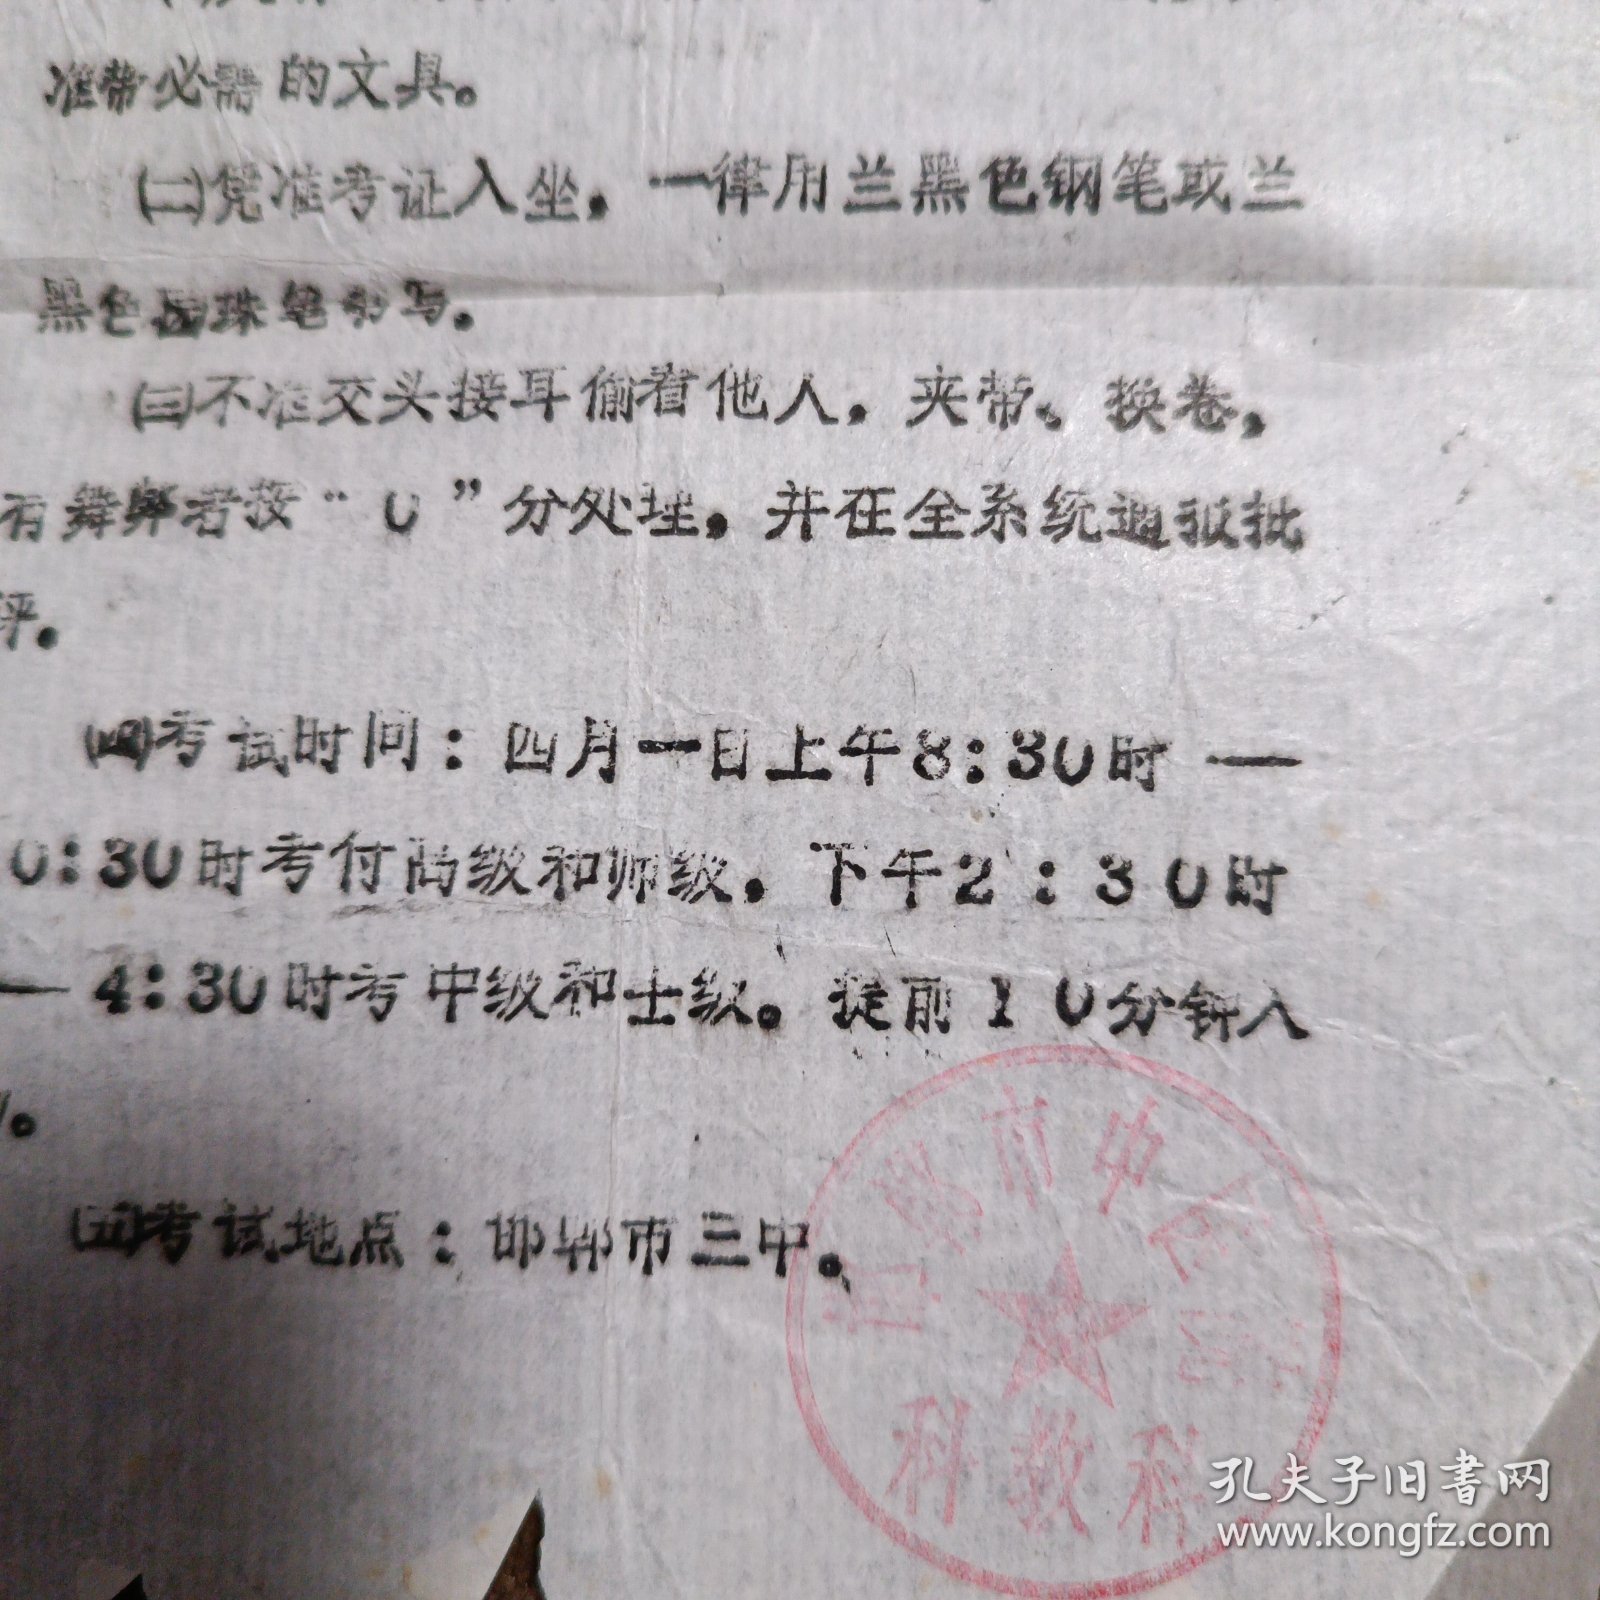 准带必需的文具。
㈡凭准考证入坐，一律用兰黑色钢笔或兰
黑色园珠笔书写。
㈢不准交头接耳偷看他人，夹带、换卷，
有舞弊者按“0”分处理，并在全系统通报批
评。
㈣考试时间：四月一日上午8:30时—
0:30时考付高级和师级，下午2:30时
—4:30时考中级和士级。提前10分钟入
。
㈤考试地点：邯郸市三中。
邯郸市中医
科教科
孔夫子旧书网
www.kongfz.com